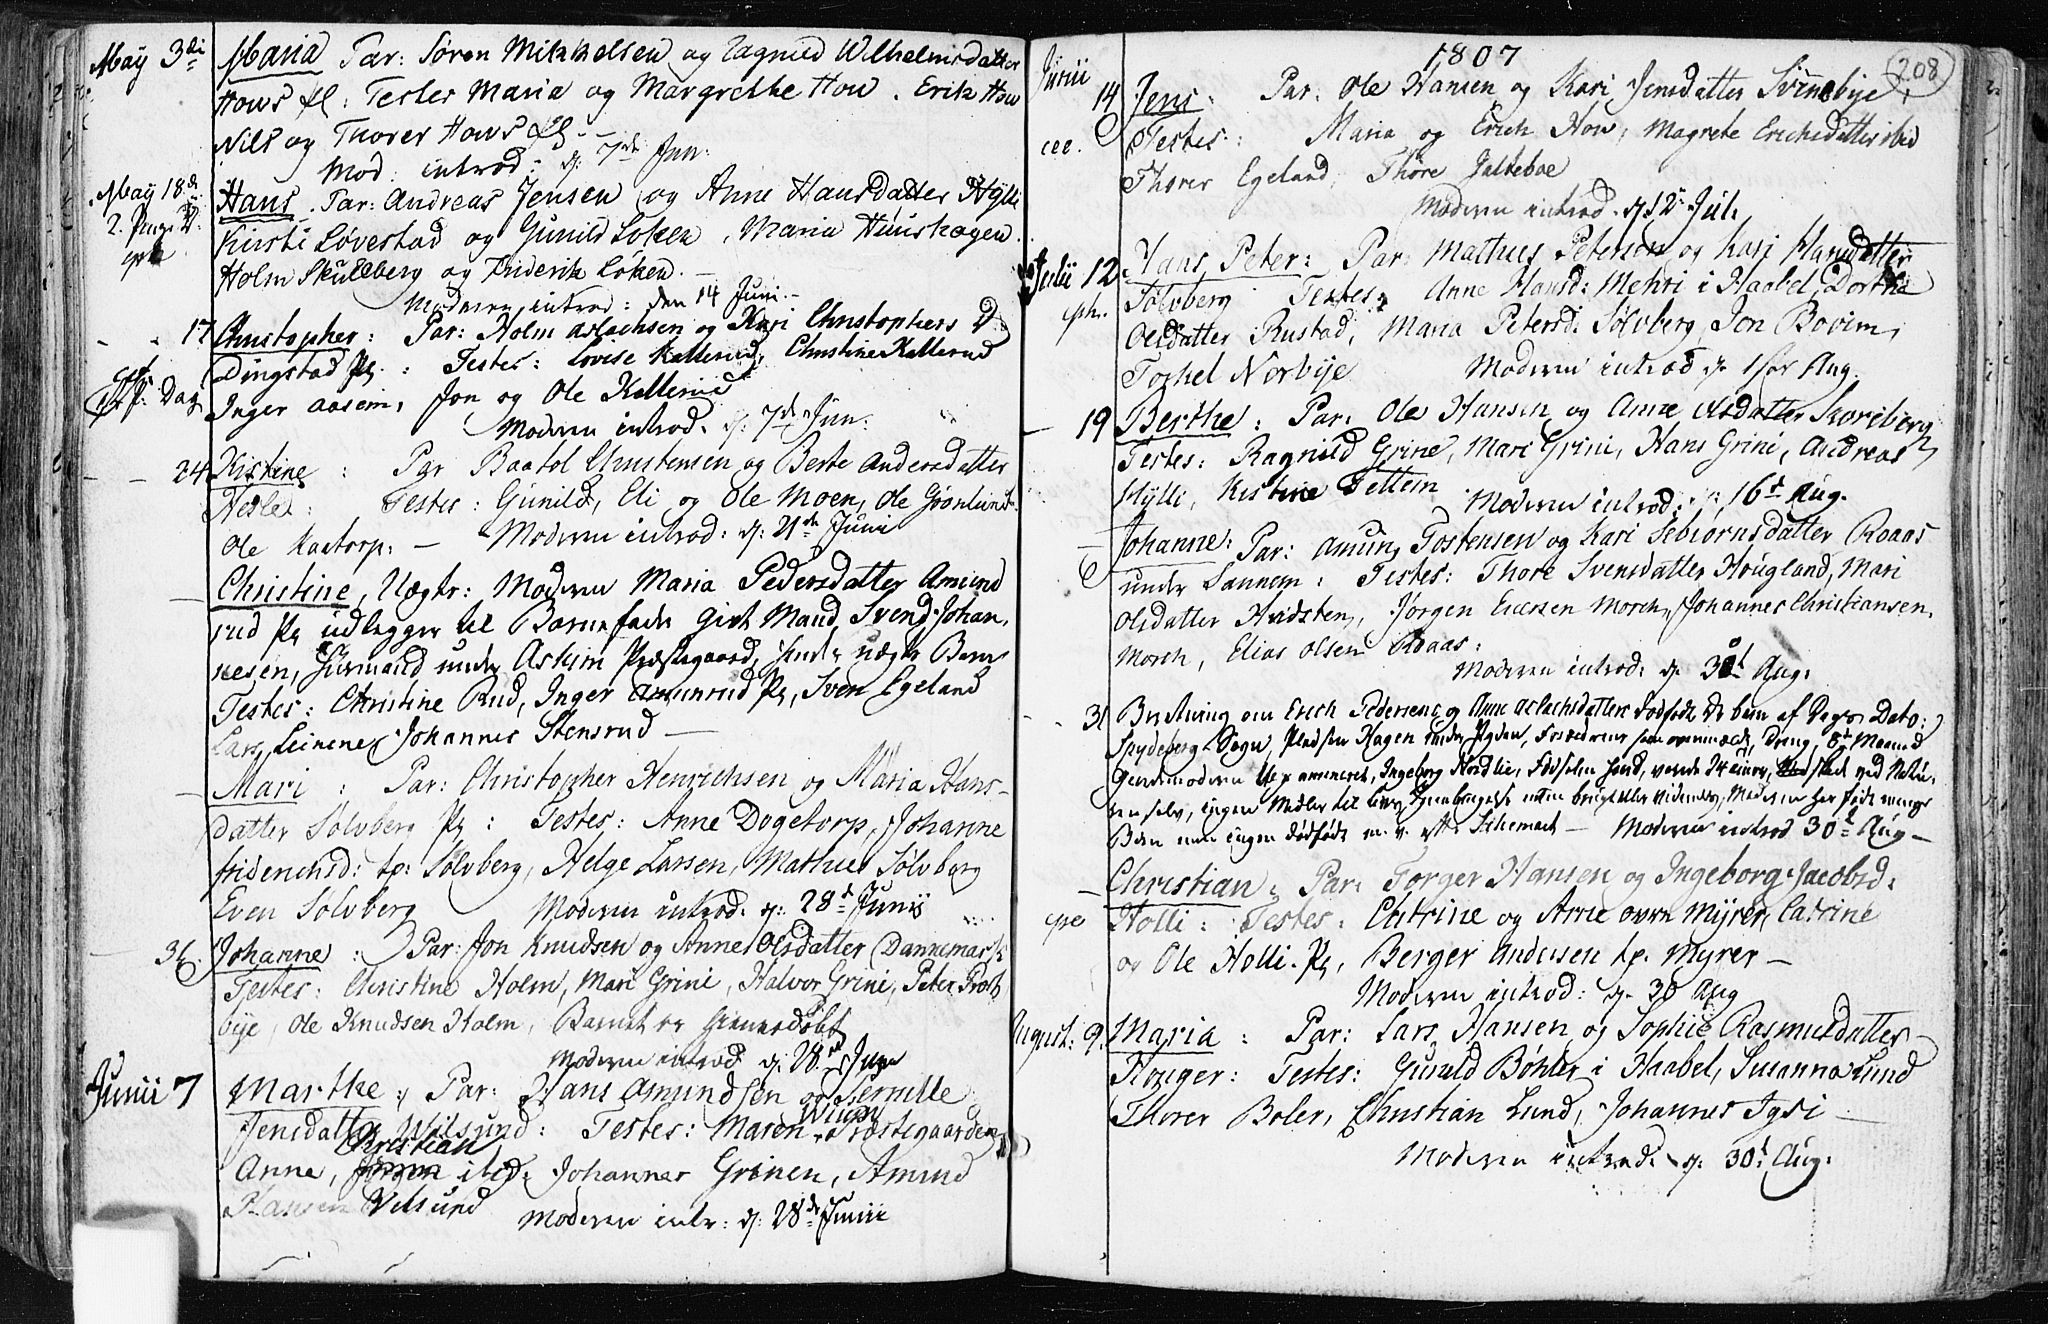 May 3di Maria Par: Søren Mikkelsen og Ragnild Wilhelmsdatter
Hows pl: Testes Maria og Margrethe How. Erik How
Nils og Thorer Hows pl.
Mod: introd: d: 7de Jun:
May 18de Hans. Par: Andreas Jensen og Anne Hansdatter Hylli
2. Pinge D. Kirsti Løvestad og Gunild Løken, Maria Huushagen
Holm Skulberg og Friderik Løken.
Moderen introd: den 14 Juni.
17 Christopher: Par: Holm Aslachsen og Kari Christophers D.
Dingstad Pl. : Testes: Lovise Kallerud, Christine Kallerud
Dag Inger Aasem, Jon og Ole Kallerud
Moderen introd. d: 7de Jun:
24 Kistine : Par Baatol Christensen og Berte Andersdatter
Hesle : Testes: Gunild, Eli og Ole Moen, Ole Grønlund
Ole Kastorp: — Moderen introd: d: 21de Juni
Christine, Uægte: Moderen Maria Pedersdatter Amund
rud Pl udlegger til Barnefader Gift Mand Svend Johan,
nesen, Huusmand under Askim Præstegaard, hendes uægte Barn
Testes: Christine Rud, Inger Amunrud Pl, Sven Egeland
Lars Leinene, Johannes Stensrud —
Mari : Par: Christopher Henrichsen og Maria Hans-
datter Solvberg Pl : Testes: Anne Dogetorp, Johanne
Fridenchsd: tp: Sølvberg, Helge Larsen, Mathies Sølvberg
Even Solvberg Moderen introd. d: 28d Junii
31. Johanne : Par: Jon Knudsen og Anne Olsdatter Dannemark
Testes: Christine Holm, Mari Grini, Halvor Grini, Peter Prots
bye, Ole Knudsen Holm, Barnet er hiemmedøbt
Moderen introd. d. 28de Juni
Junii 7 Marthe: Par: Hans Amundsen og Pernille
Wium
Jensdatter Wilsund: Testes: Maren Præstegaarden
Christian
Anne, ibid. Johannes Grinen, Amund
Hansen Vilsund Moderen intr: d: 28de Junii
1807
208
Junii 14 Jens: Par: Ole Hansen og Kari Jensdatter Svinebye,
Testes: Maria og Erich How, Magrete Erichsdatter ibid
Thorer Egeland, Thore Jalteboe
Moderen introd. d 12 Jul.
Julii 12 Hans Peter: Par: Mathies Petersen og Kari Hansdatter
Sølvberg Testes: Anne Hansd: Mehri i Haabel, Dorthe
Olsdatter Rustad, Maria Petersd. Sølvberg, Jon Bovim,
Torkel Norbye Moderen introd d. 1ste Aug.
19 Berthe: Par: Ole Hansen og Anne Olsdatter Skoreberg
Testes: Ragnild Grine, Mari Grini, Hans Grini, Andreas
Hylli, Kistine Tettem Moderen introd: d: 16d Aug.
Johanne: Par: Amund Tostensen og Kari Sebiørnsdatter Raaas
under Sannem: Testes: Thore Svensdatter Hougland, Mari
Olsdatter Hvidsten, Jørgen Ericsen Morch, Johannes Christiansen
Morch, Elias Olsen Raaas:
Moderen introd: d. 30d Aug:
31 Beretning om Erich Pedersens og Anne Aslachsdatters dødfødte D. barn af Dags Dato:
Spydeberg Sogn, Pladsen Hagen under Ryden, Forældrene som ovenmeldt, Dreng, 8de Maaned
Giordemoderen Ingeborg Nordlie, Fødselen haard, varede 24 timer, skeed ved Natu-
ren selv, ingen Midler til Livs igienbringelse uden
Børn men ingen dødfødt Schemaet — Moderen introd 30d Aug —
Christian: Par: Torger Hansen og Ingeborg Jacobsd.
Holli: Testes: Chtrine og Arne Myrer, Catrine
og Ole Holli Pl, Berger Andersen tp: Myrer —
Moderen introd: d. 30 Aug
August: 9. Maria: Par: Lars Hansen og Sophie Rasmusdatter
Houger: Testes: Gunild Bøhler i Haabel, Susanna Lund
Thorer Boler, Christian Lund, Johannes Tysi —
Moderen introd. d. 30d Aug.